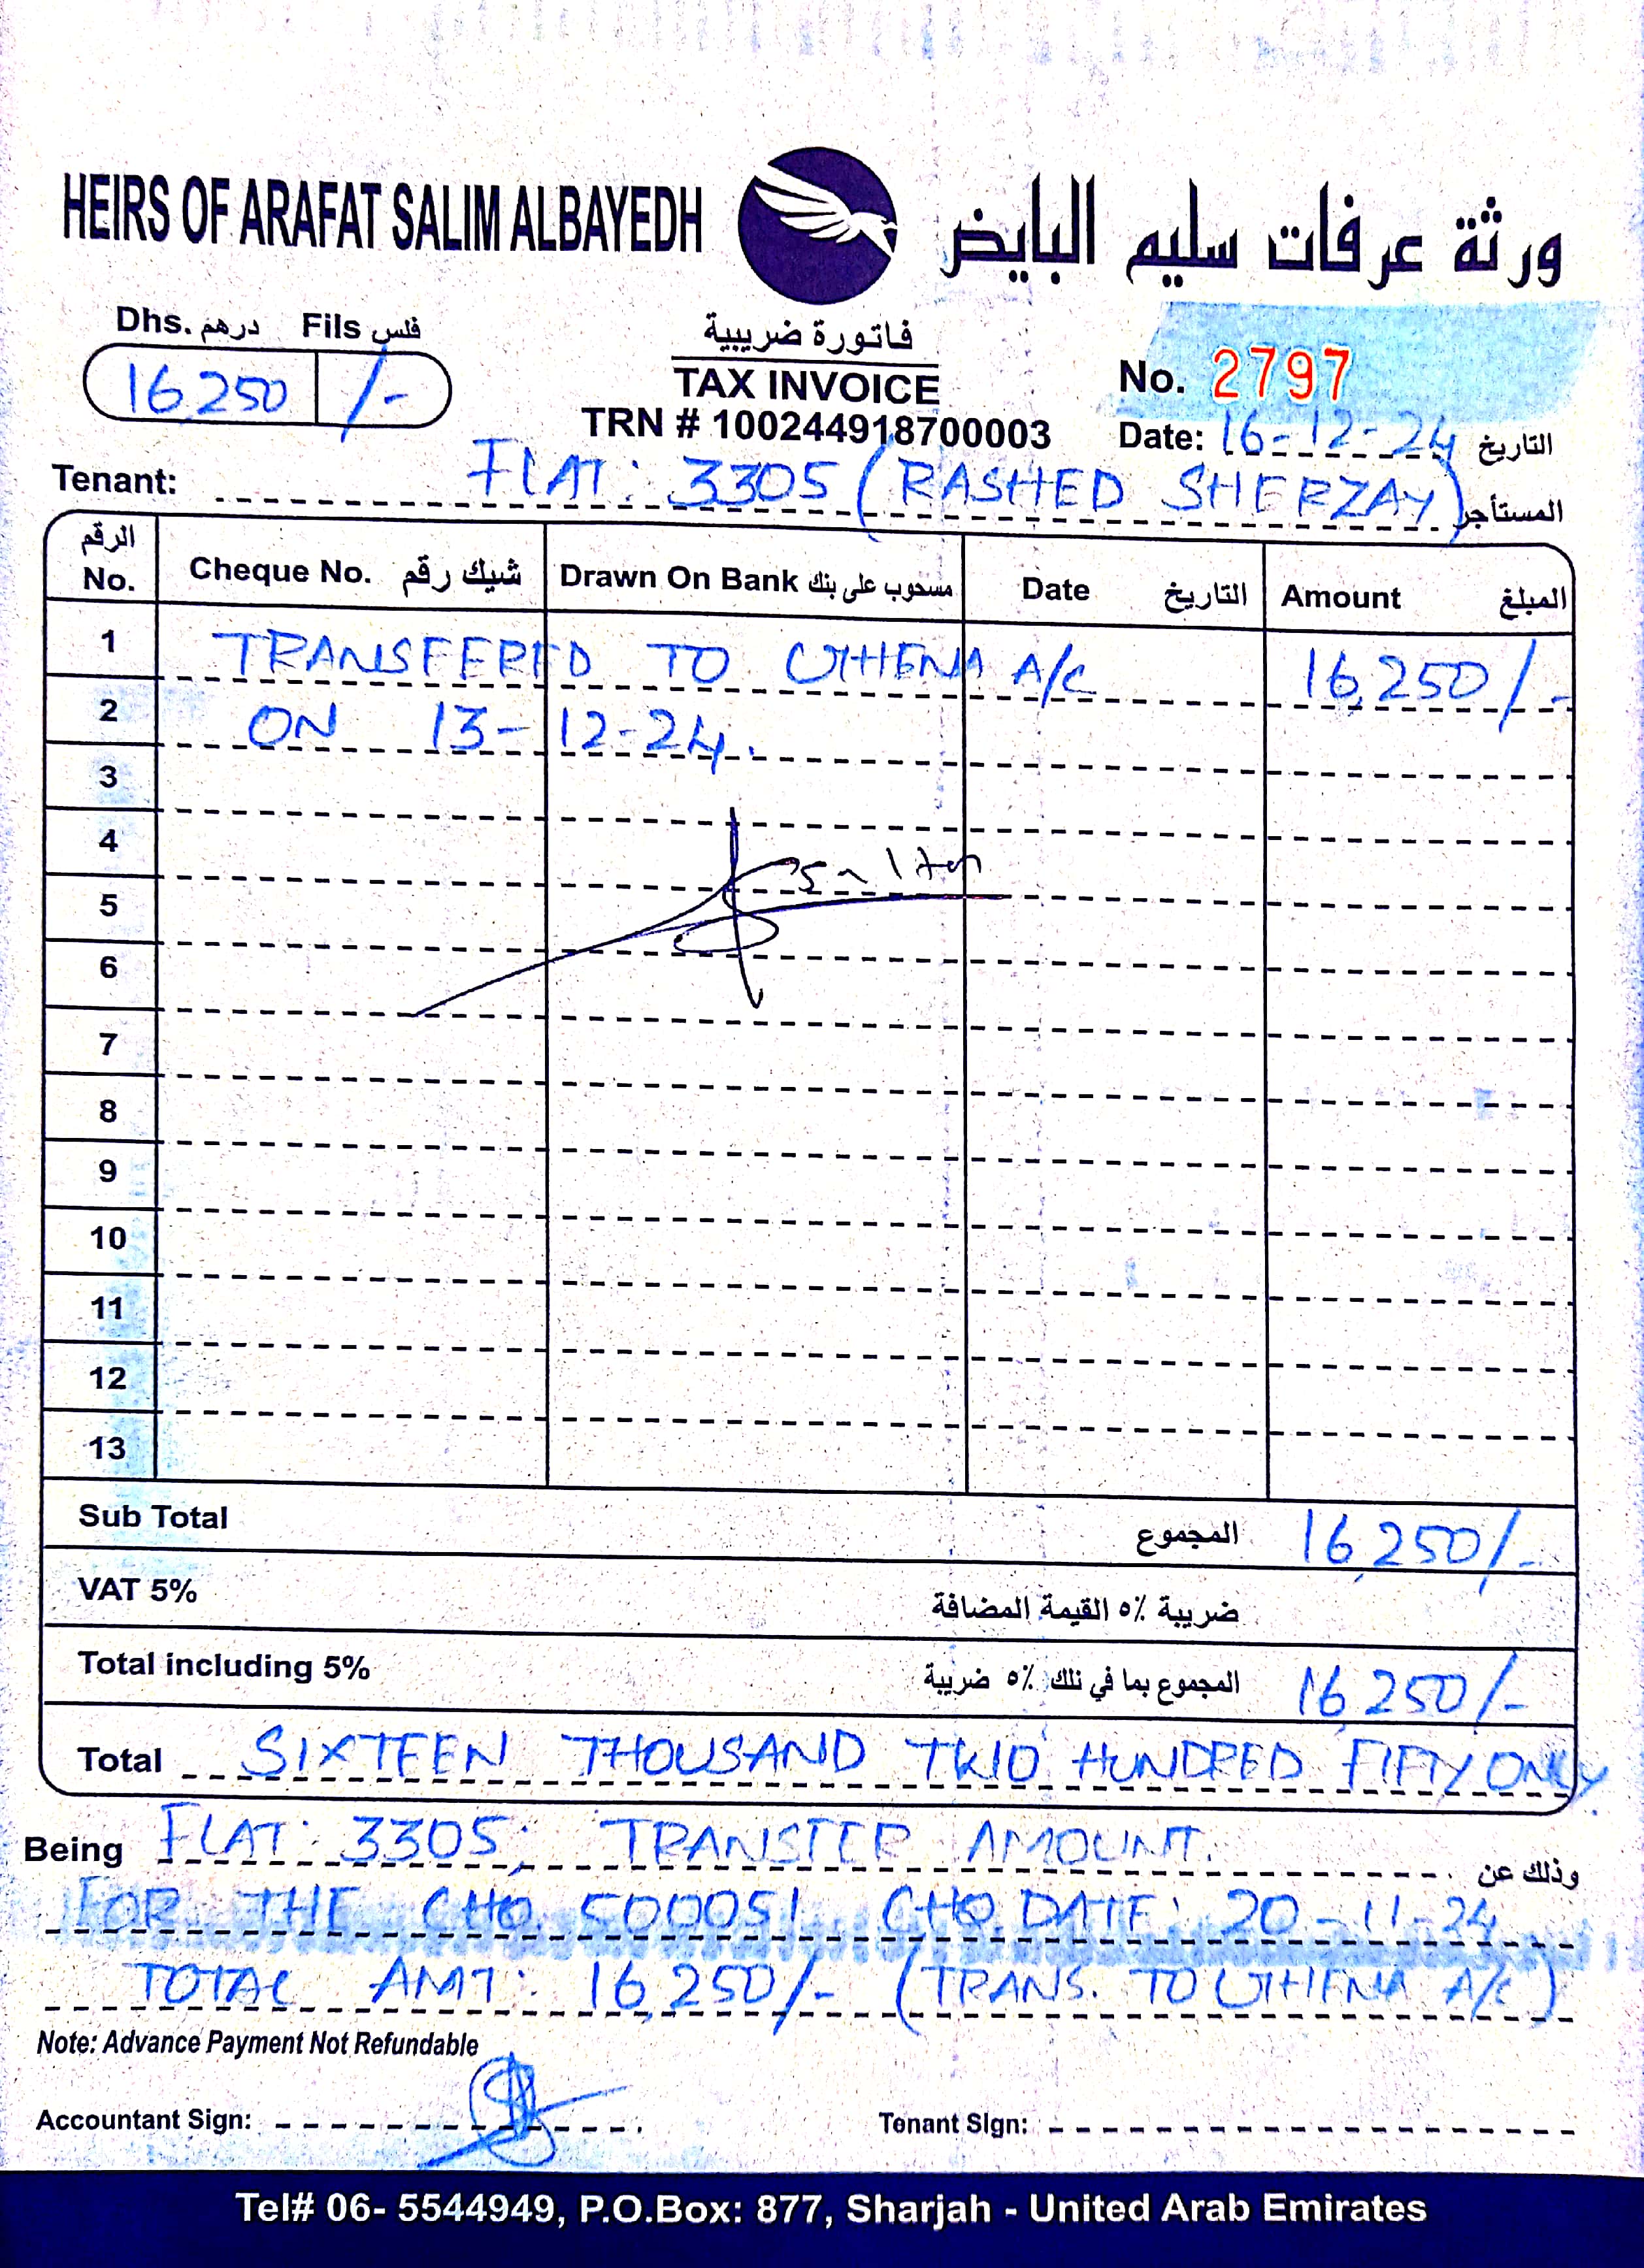 HEIRS OF ARAFAT SALIM ALBAYEDH ورثة عرفات سليم البايض
Dhs. درهم Fils فلس
16,250 /-
فاتورة ضريبية
TAX INVOICE
TRN # 100244918700003
No. 2797
Date: 16-12-24 التاريخ
Tenant: FLAT: 3305 (RASHED SHERZAY) المستأجر
الرقم No. Cheque No. شيك رقم Drawn On Bank مسحوب على بنك Date التاريخ Amount المبلغ
1 TRANSFERED TO UTHENA A/C 16,250/-
2 ON 13-12-24.
3
4
5
6
7
8
9
10
11
12
13
Sub Total المجموع 16,250/-
VAT 5% ضريبة ٥٪ القيمة المضافة
Total including 5% المجموع بما في ذلك ٥٪ ضريبة 16,250/-
Total SIXTEEN THOUSAND TWO HUNDRED FIFTY ONLY.
Being FLAT: 3305; TRANSFER AMOUNT. وذلك عن
FOR THE CHQ. 500051 CHQ. DATE: 20-11-24
TOTAL AMT: 16,250/- (TRANS. TO UTHENA A/C)
Note: Advance Payment Not Refundable
Accountant Sign: Tenant Sign:
Tel# 06- 5544949, P.O.Box: 877, Sharjah - United Arab Emirates